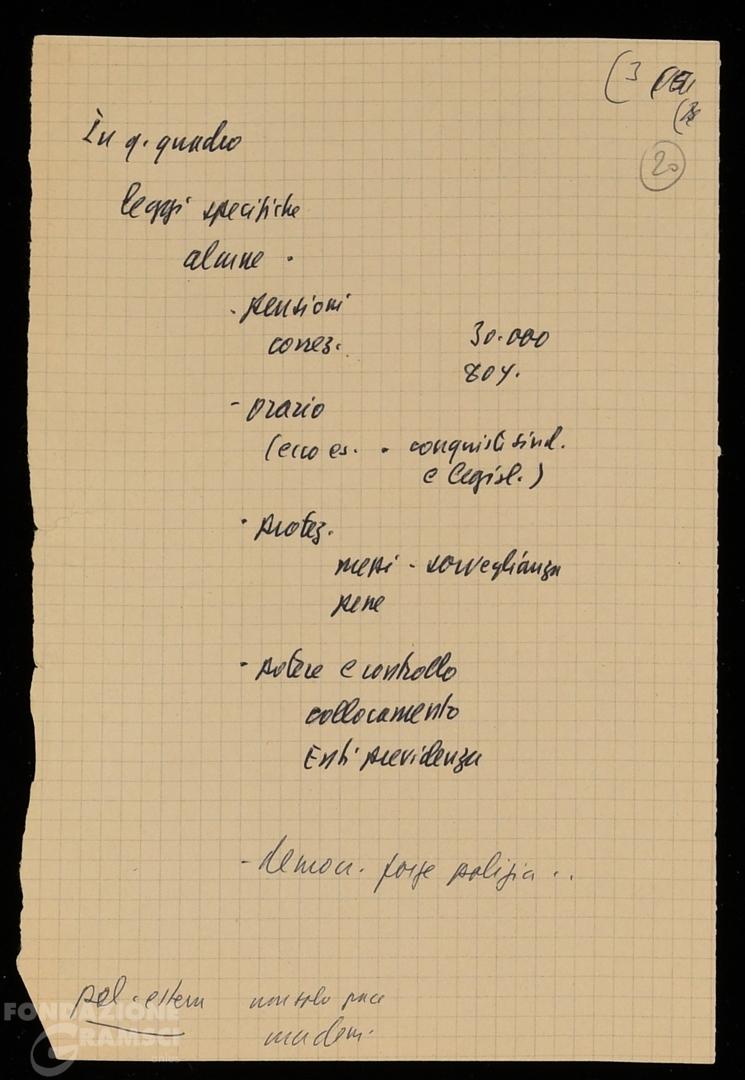 (3
20
In q. quadro
leggi specifiche
alcune .
- pensioni 30.000
connes. 80%.
- orario
(ecco es. - conquiste sind.
e legisl.)
- protez.
mezzi - sorveglianza
pene
- potere e controllo
collocamento
Enti previdenza
- democr. forze polizia ..
pol. estera non solo pace
ma dem.
FONDAZIONE
GRAMSCI